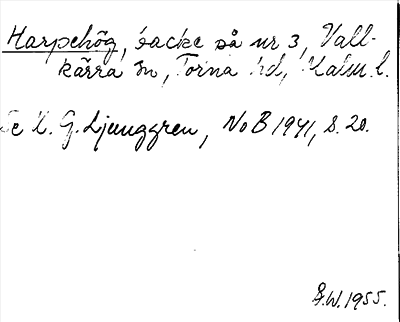 Harpehög, backe på nr 3, Vall-
kärra sn, Torna hd, Malm. l.
Se K. G. Ljunggren, NoB 1941, s. 20.
G.W. 1955.